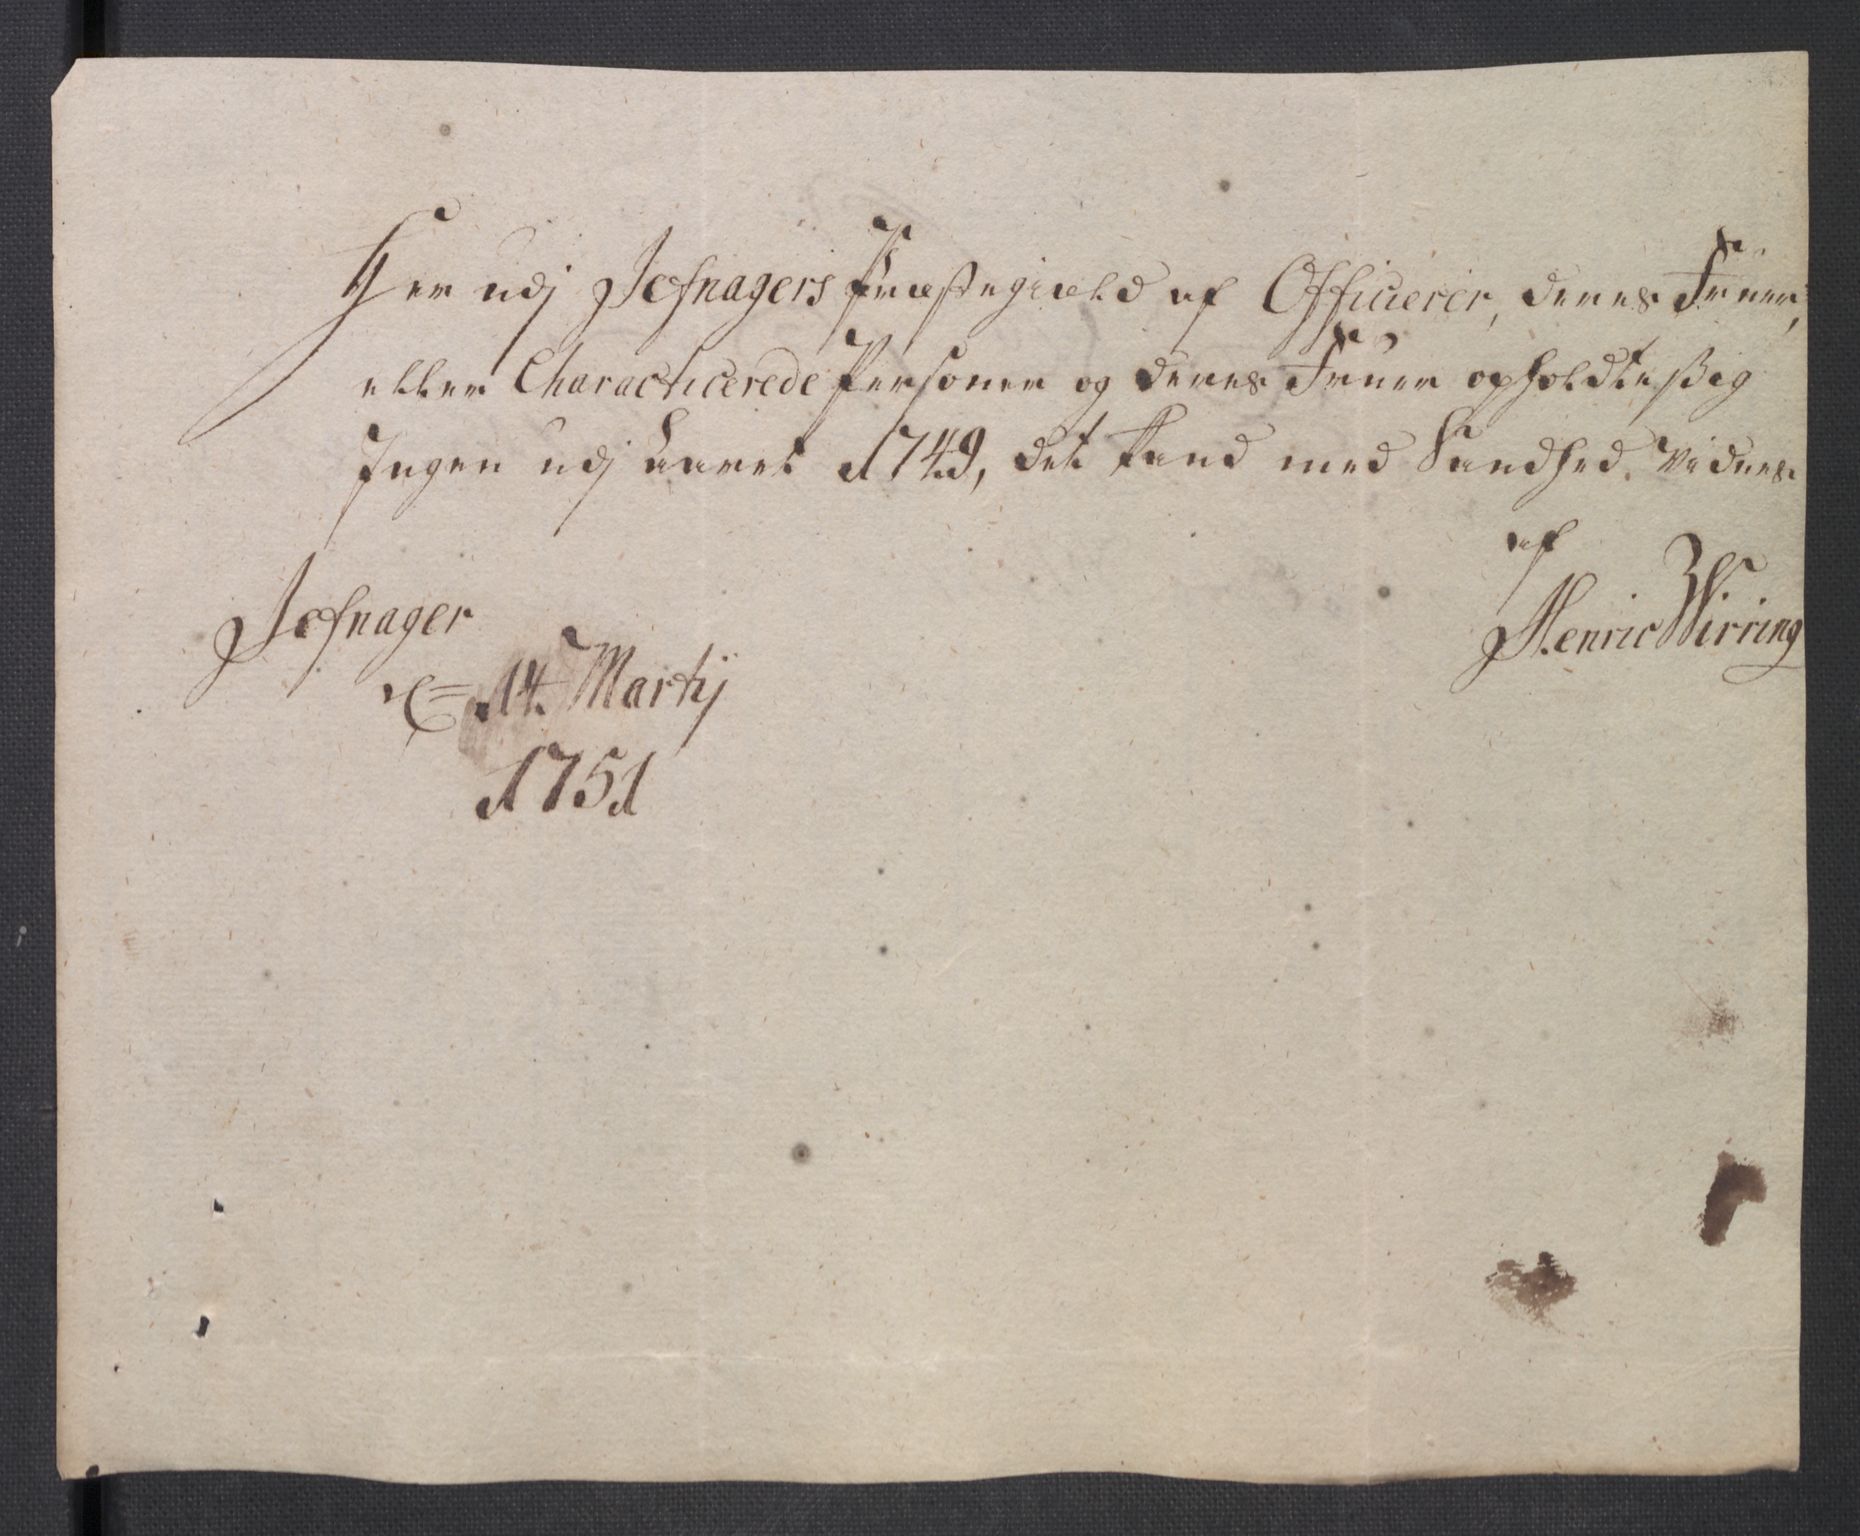 Her udj Jefnagers Præstegield af Officierer, deres Fruer,
eller Characticerede Personer og deres Fruer opholdte ßig
Ingen udj Aaret 1749, det kand med Sandhed Vidnes
af
Henric Wirring
Jefnager
14. Martij
1751